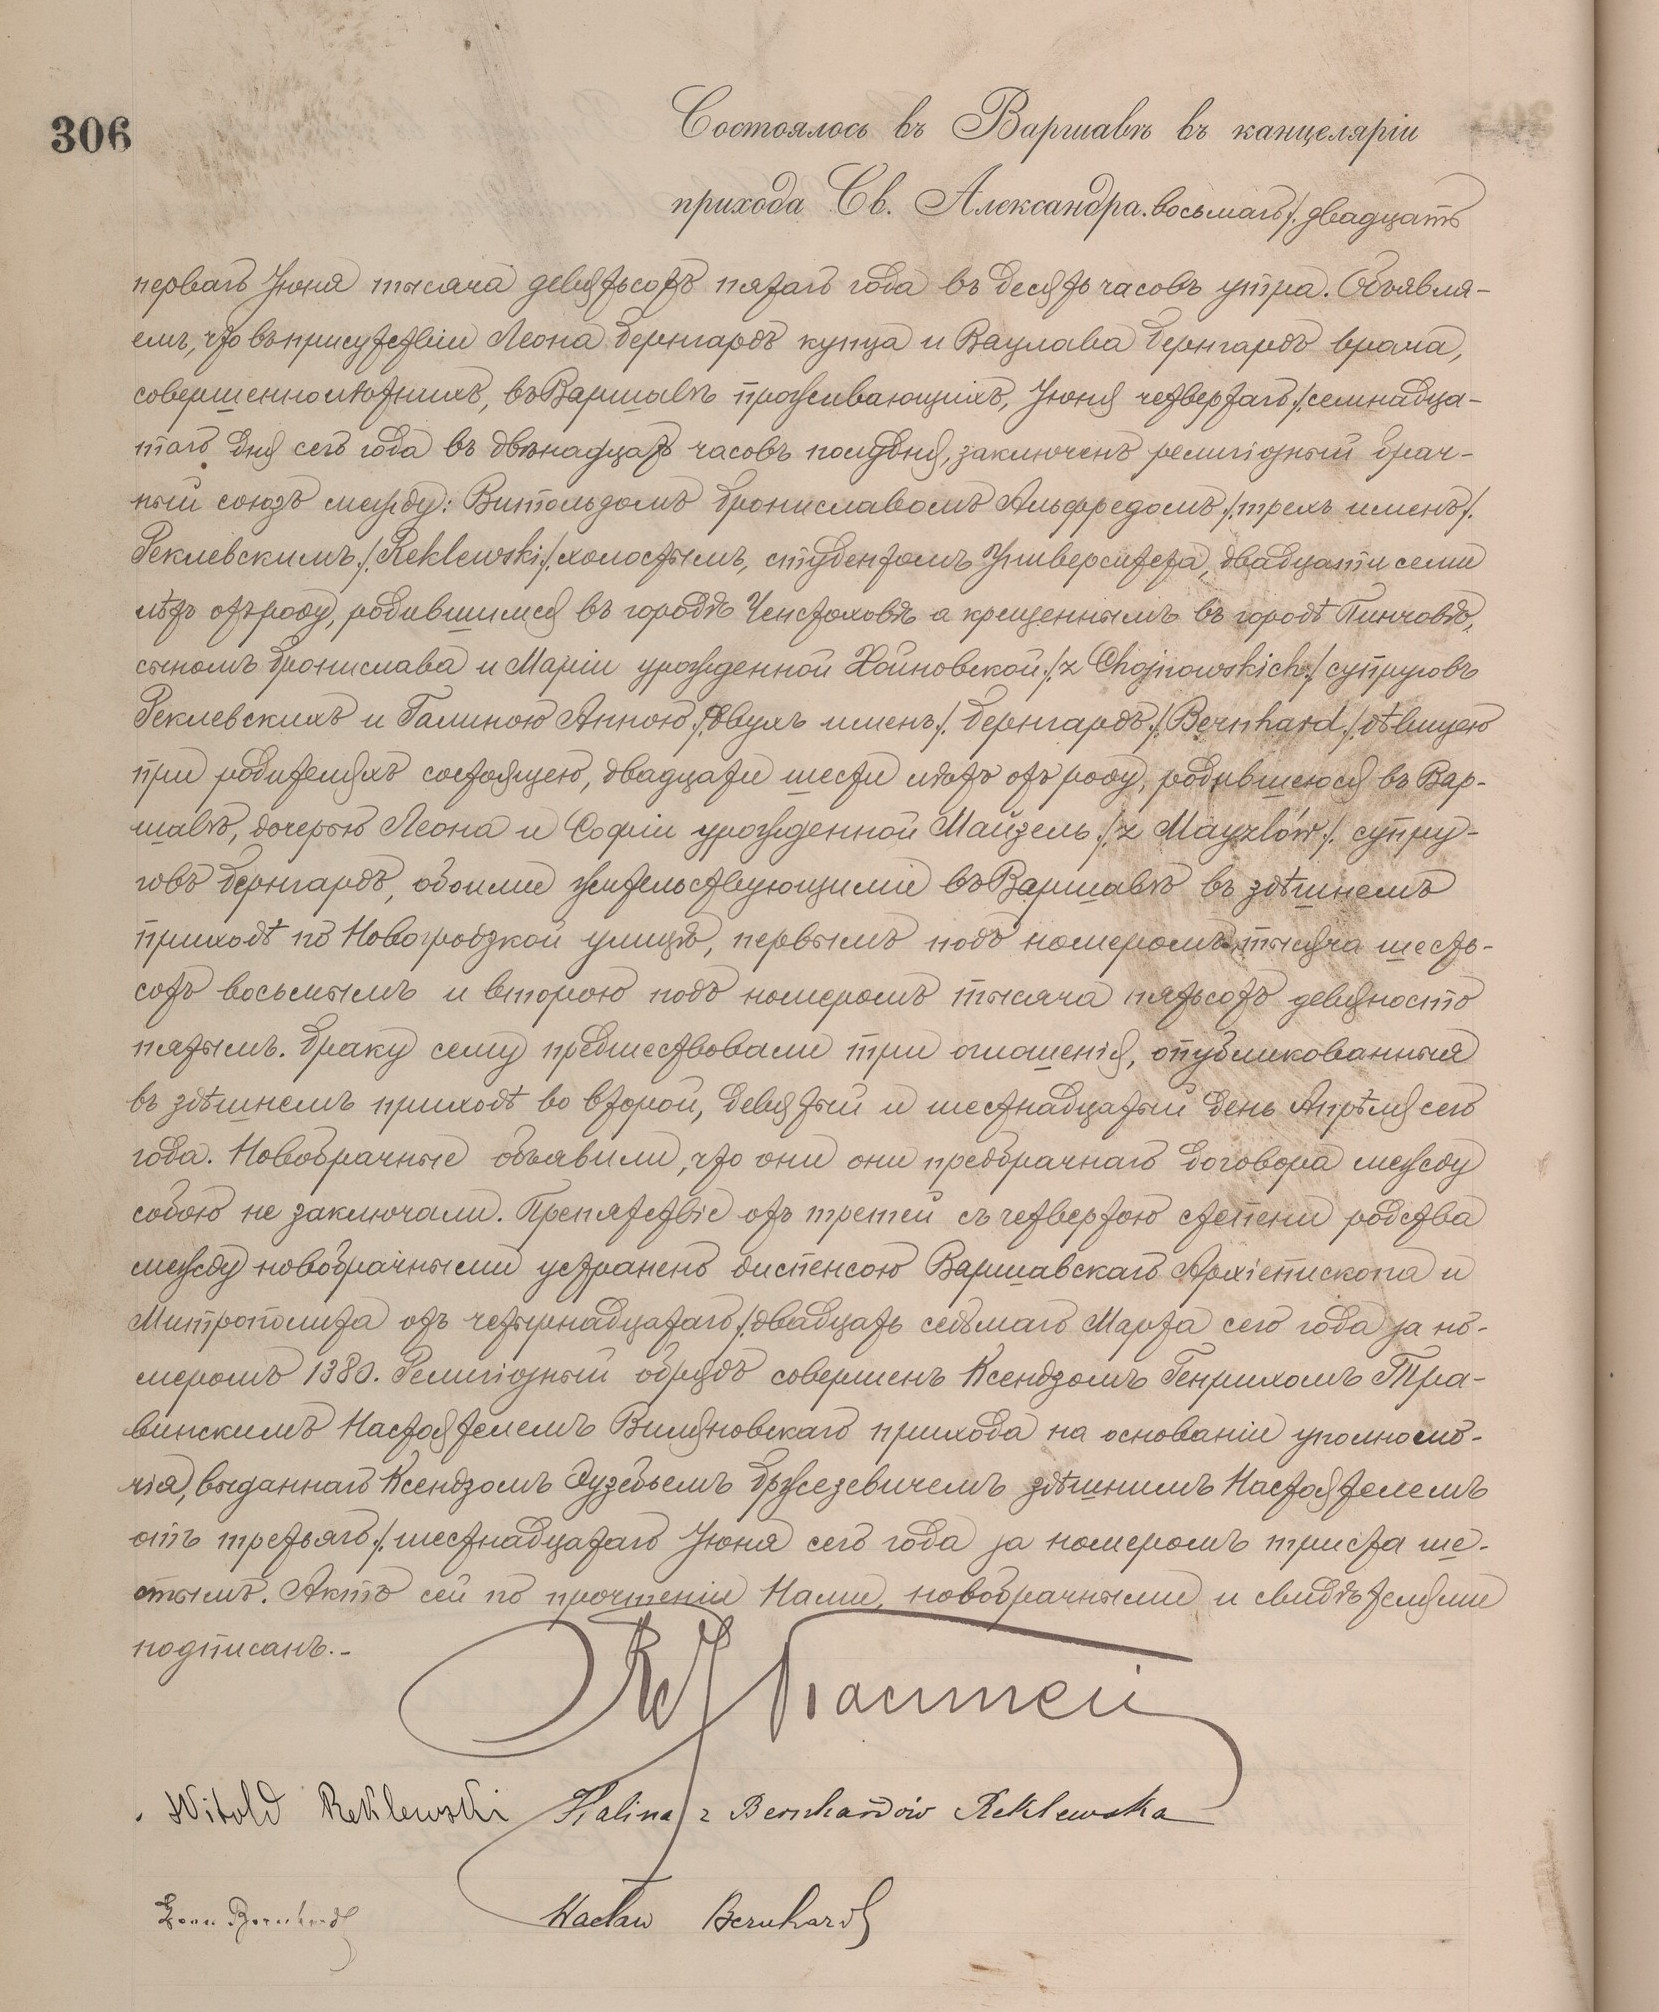 306
Состоялось въ Варшавѣ въ канцеляріи
прихода Св. Александра. восьмаго /. двадцать
перваго Іюня тысяча девятьсотъ пятаго года въ десять часовъ утра. Объявля-
емъ, что въ присутствіи Леона Бернгардъ купца и Вацлава Бернгардъ врача,
совершеннолѣтнихъ, въ Варшавѣ проживающихъ, Іюня четвертаго /. семнадца-
таго дня сего года въ двѣнадцать часовъ полудня, заключенъ религіозный брач-
ный союзъ между: Витольдомъ Брониславомъ Альфредомъ /. трехъ именъ /.
Реклевскимъ /. Reklewski /. холостымъ, студентомъ Университета, двадцати семи
лѣтъ отъ роду, родившимся въ городѣ Ченстоховѣ а крещеннымъ въ городѣ Пинчовѣ,
сыномъ Бронислава и Маріи урожденной Хойновской /. z Chojnowskich /. супруговъ
Реклевскихъ и Галиною Анною /. двухъ именъ /. Бернгардъ /. Bernhard /. дѣвицею
при родителяхъ состоящею, двадцати шести лѣтъ отъ роду, родившеюся въ Вар-
шавѣ, дочерью Леона и Софіи урожденной Майзель /. z Mayzlów /. супру-
говъ Бернгардъ, обоими жительствующими въ Варшавѣ въ здѣшнемъ
приходѣ по Новогродзкой улицѣ, первымъ подъ номеромъ тысяча шесть-
сотъ восьмымъ и второю подъ номеромъ тысяча пятьсотъ девяносто
пятымъ. Браку сему предшествовали три оглашенія, опубликованныя
въ здѣшнемъ приходѣ во второй, девятый и шестнадцатый день Апрѣля сего
года. Новобрачные объявили, что они они предбрачнаго договора между
собою не заключали. Препятствіе отъ третей съ четвертою степени родства
между новобрачными устранено диспенсою Варшавскаго Архіепископа и
Митрополита отъ четырнадцатаго /. двадцать седьмаго Марта сего года за но-
меромъ 1380. Религіозный обрядъ совершенъ Ксендзомъ Генрихомъ Тра-
винскимъ Настоятелемъ Виляновскаго прихода на основаніи уполномо-
чія, выданнаго Ксендзомъ Эузебьемъ Бржезевичемъ здѣшнимъ Настоятелемъ
отъ третьяго /. шестнадцатаго Іюня сего года за номеромъ триста ше-
стымъ. Актъ сей по прочтеніи Нами, новобрачными и свидѣтелями
подписанъ.-
Witold Reklewski Halina z Bernhardów Reklewska
Leon Bernhard Wacław Bernhard